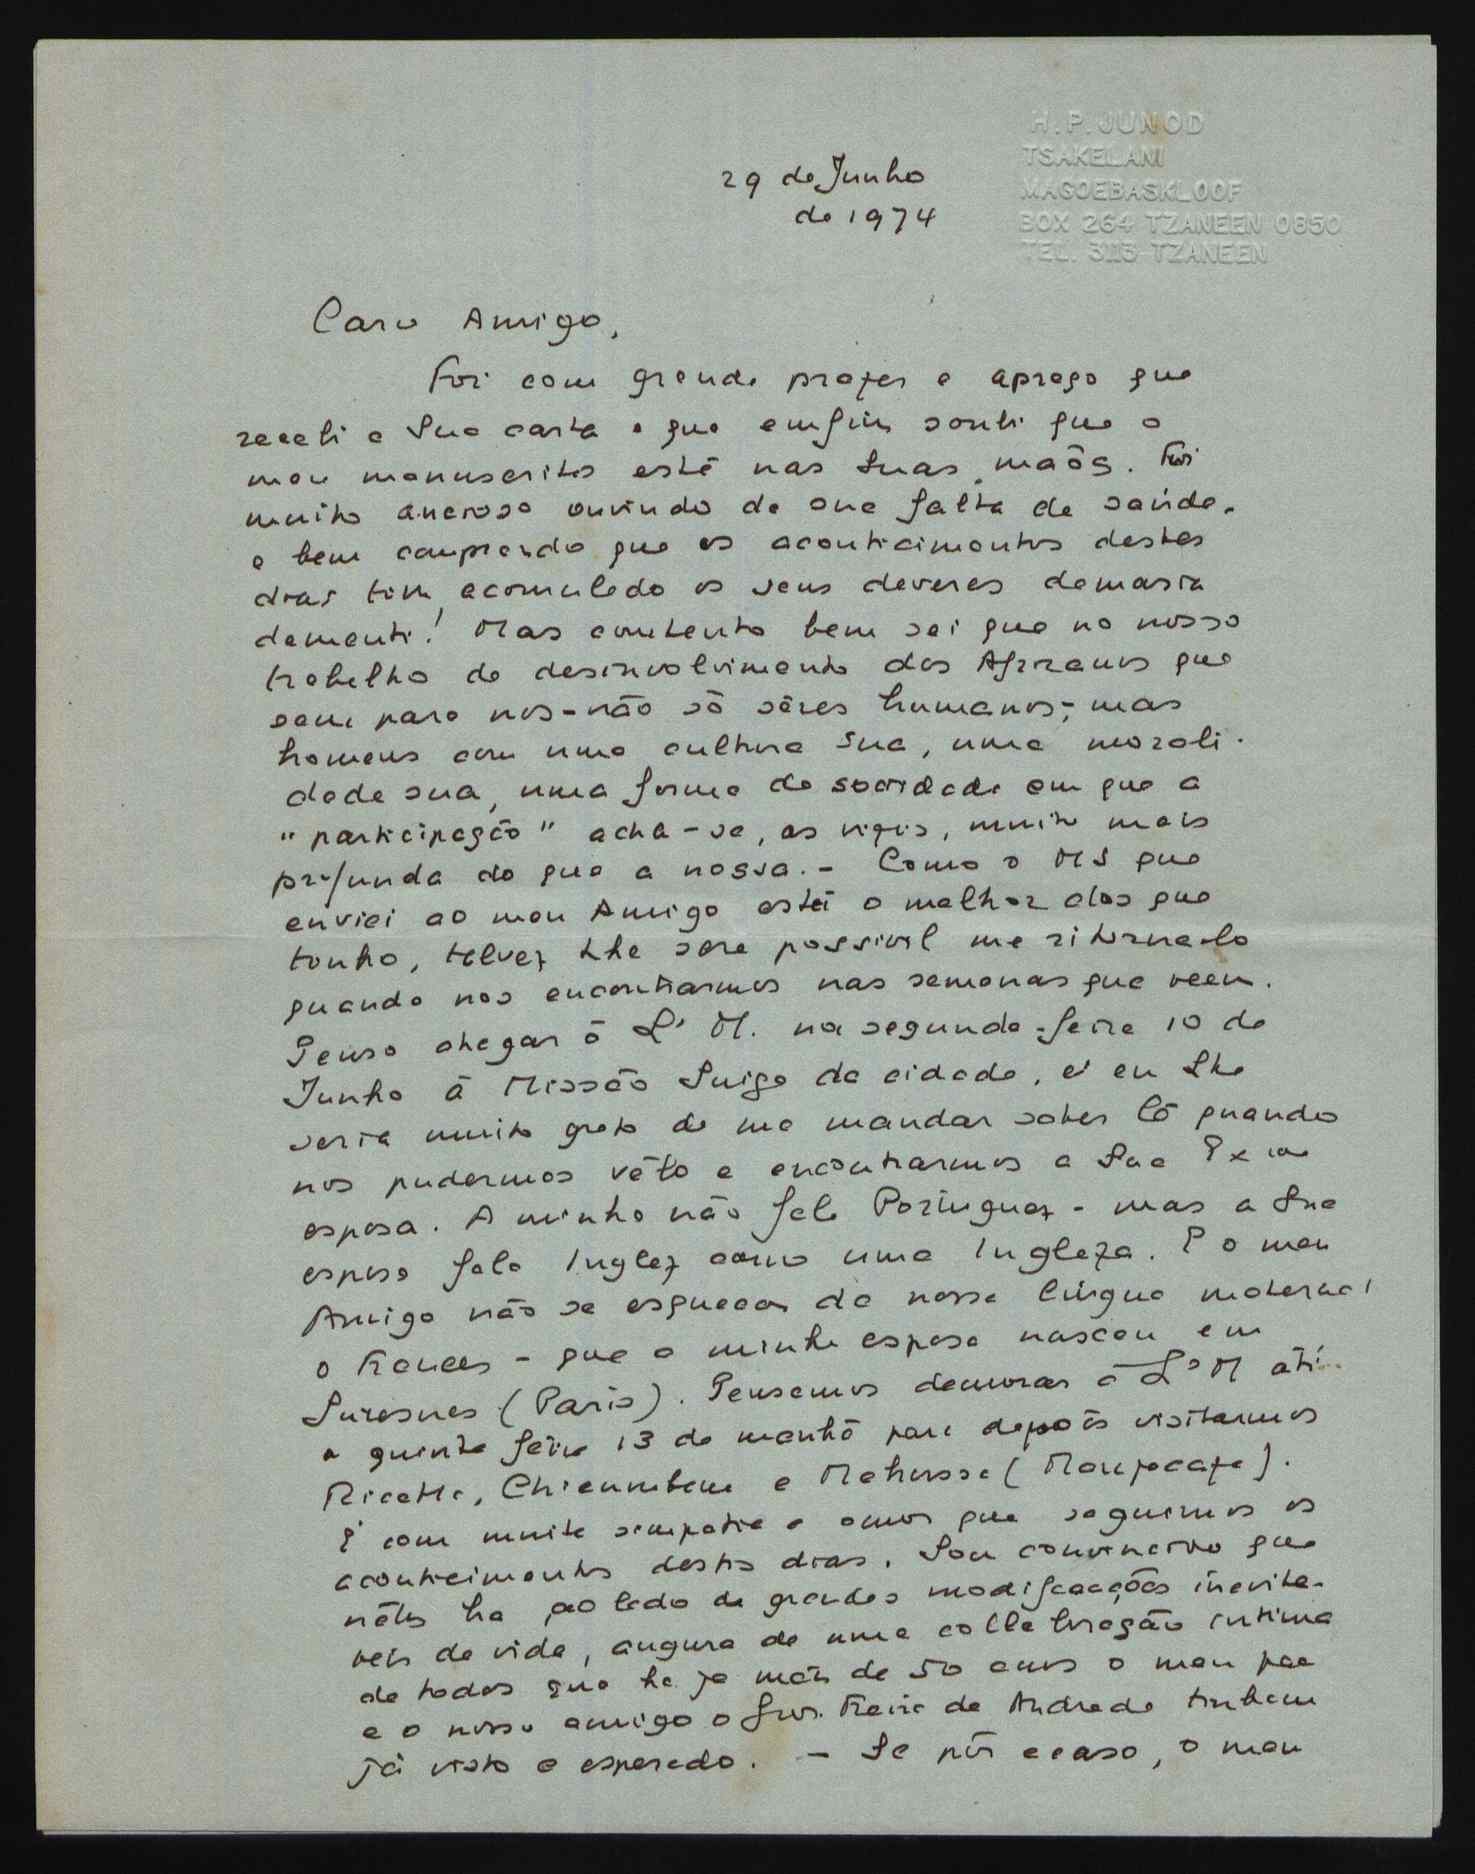 H. P. JUNOD
TSAKELANI
MAGOEBASKLOOF
BOX 264 TZANEEN 0850
TEL. 3113 TZANEEN
29 de Junho
de 1974
Caro Amigo,
Foi com grande prazer e apreço que
recebi a Sua carta e que emfim soube que o
meu manuscrito está nas Suas maõs. Foi
muito ancioso ouvindo da sua falta de saúde,
e bem comprendo que os aconticimentos destes
dias tem acomulado os seus deveres demasia
damente! Mas contento bem sei que no nosso
trabalho de desenvolvimento dos Africanos que
sam para nos - não só sêres humanos; mas
homens com uma cultura sua, uma morali-
dade sua, uma forma de sociedade em que a
"participação" acha-se, as vezes, muito mais
profunda do que a nossa. - Como o MS que
enviei ao meu Amigo está o melhor dos que
tenho, talvez Lhe sera possivel me ritorna-lo
quando nos encontrarmos nas semanas que veem.
Penso chegar á L. M. na segunda-feira 10 de
Junho á Missão Suiça da cidade, e eu Lhe
seria muito grato de me mandar saber lá quando
nos pudermos vê-lo e encontrarmos a Sua Exma
esposa. A minha não fala Portuguez - mas a Sua
esposa fala Inglez como uma Ingleza. E o meu
Amigo não se esquece da nossa língua materna!
o Frances - que a minha esposa nasceu em
Suresnes (Paris). Pensamos demorar á L. M até
a quinta feira 13 de manhã para depois visitarmos
Ricatla, Chicumbane e Mahusse (Manjacaze).
É com muita simpatia e amor que seguimos os
aconticimentos destes dias. Sou convincido que
nêles ha ao lado de grandes modificacções inevita-
veis da vida, augura de uma collaboração intima
de todos que ha ja mais de 50 anos o meu pae
e o nosso amigo o Snr. Freire de Andrade tinham
já visto e esperado. - Se pôr acaso, o meu